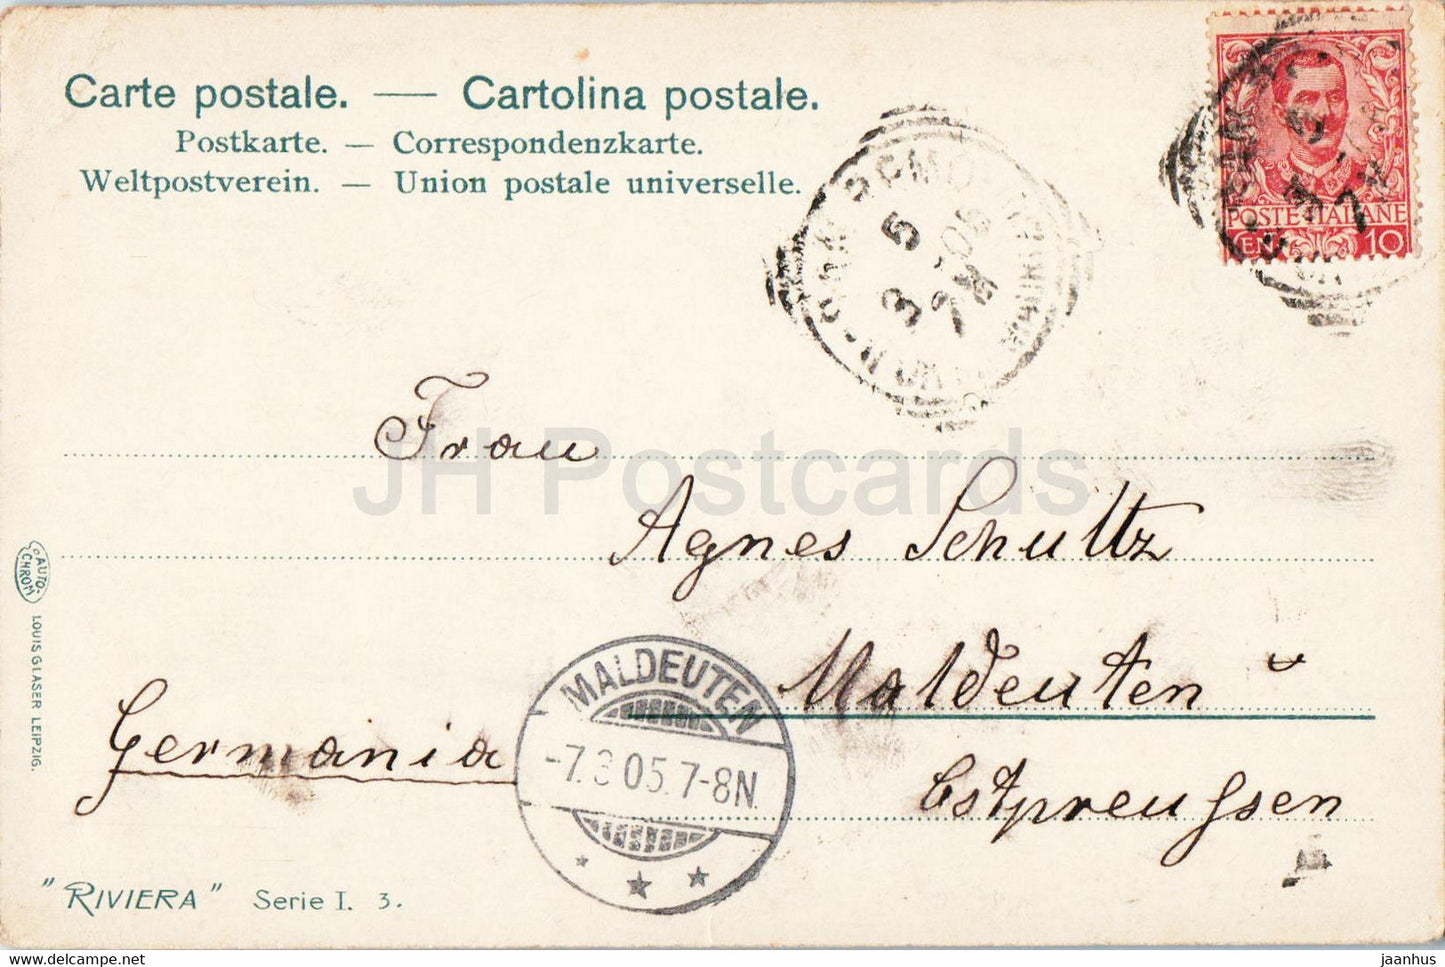 Carte postale. — Cartolina postale.
Postkarte. — Correspondenzkarte.
Weltpostverein. — Union postale universelle.
POSTE ITALIANE
CEN 10
5
3
05
7M
Frau
Agnes Schultz
Maldeuten
Ostpreußen
Germania
MALDEUTEN
-7.3 05.7-8N.
"RIVIERA" Serie I. 3.
AUTO-
CHROM
LOUIS GLASER LEIPZIG.
JH Postcards
www.hippostcard.com/store/jhpostcards
jaanhus